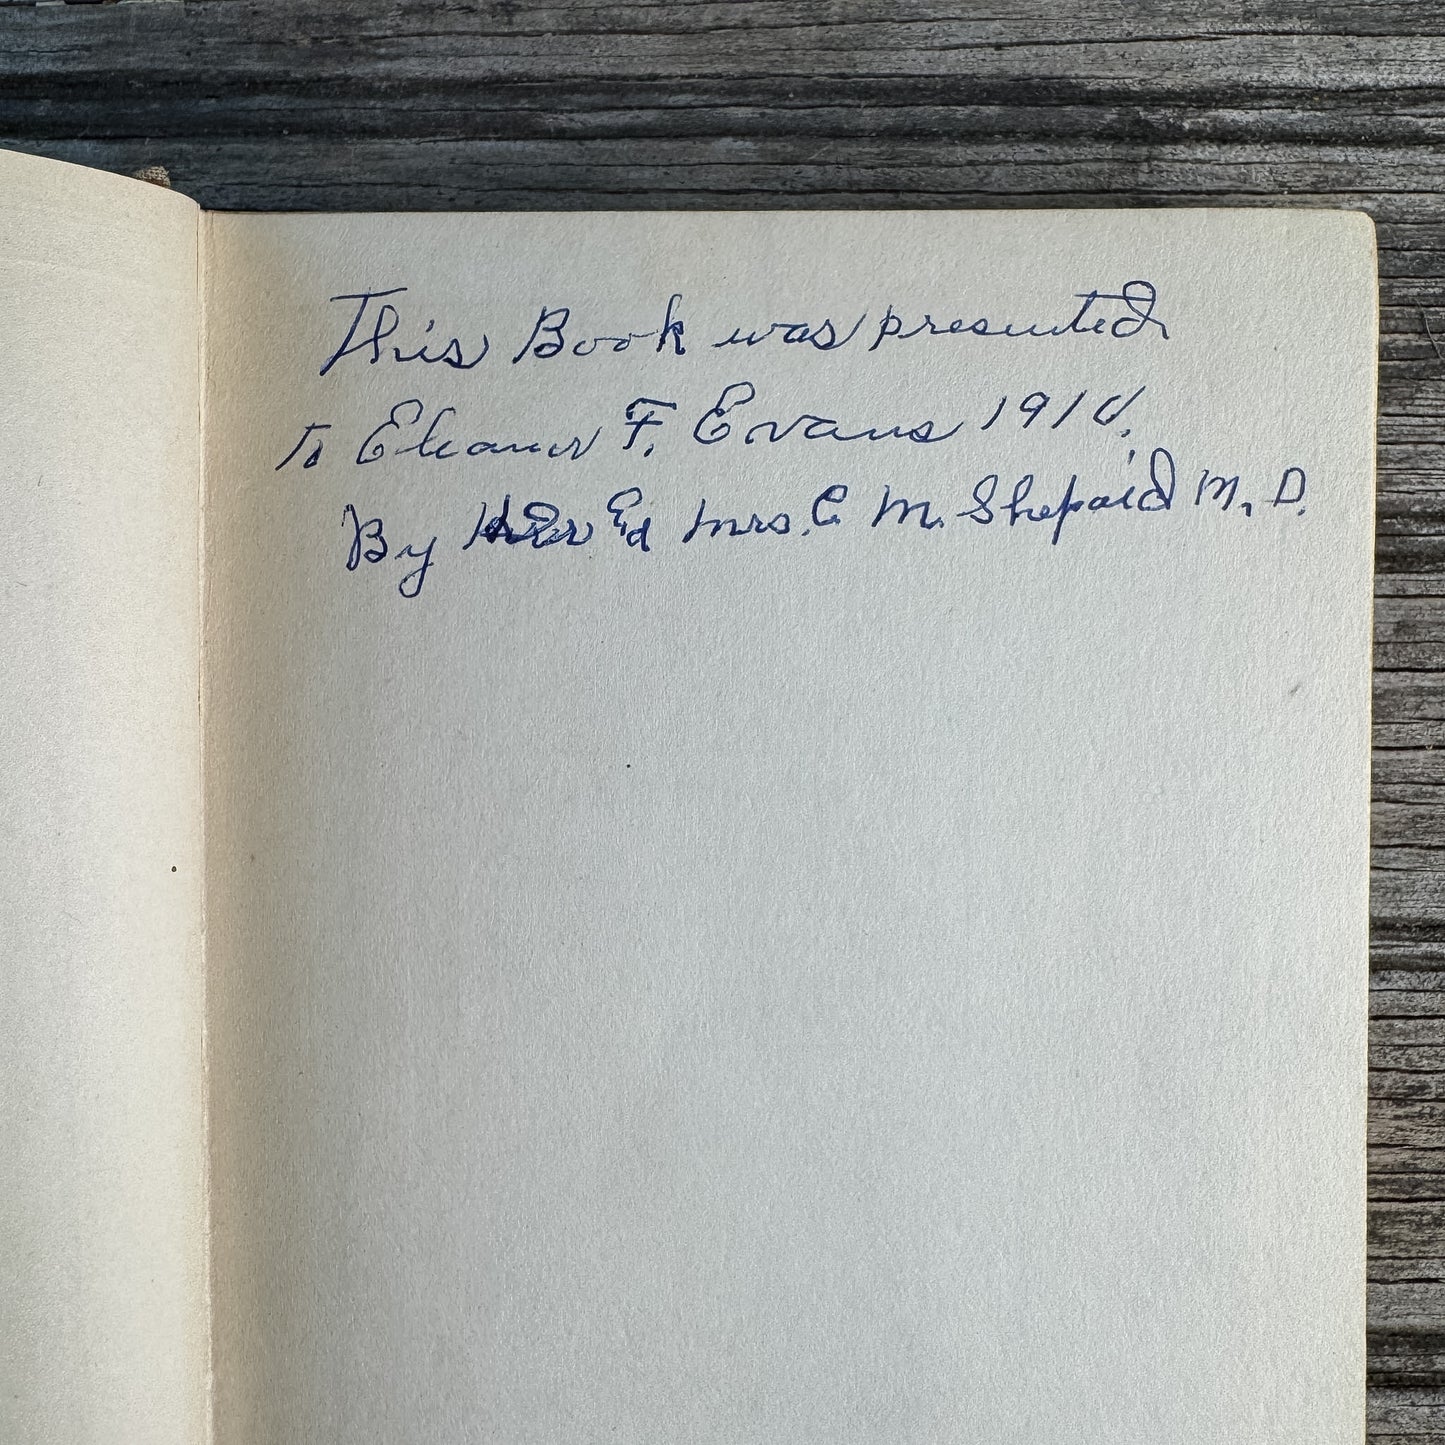 This Book was presented
to Eleanor F. Evans 1910.
By Ed Mrs. C M. Shepard M. D.